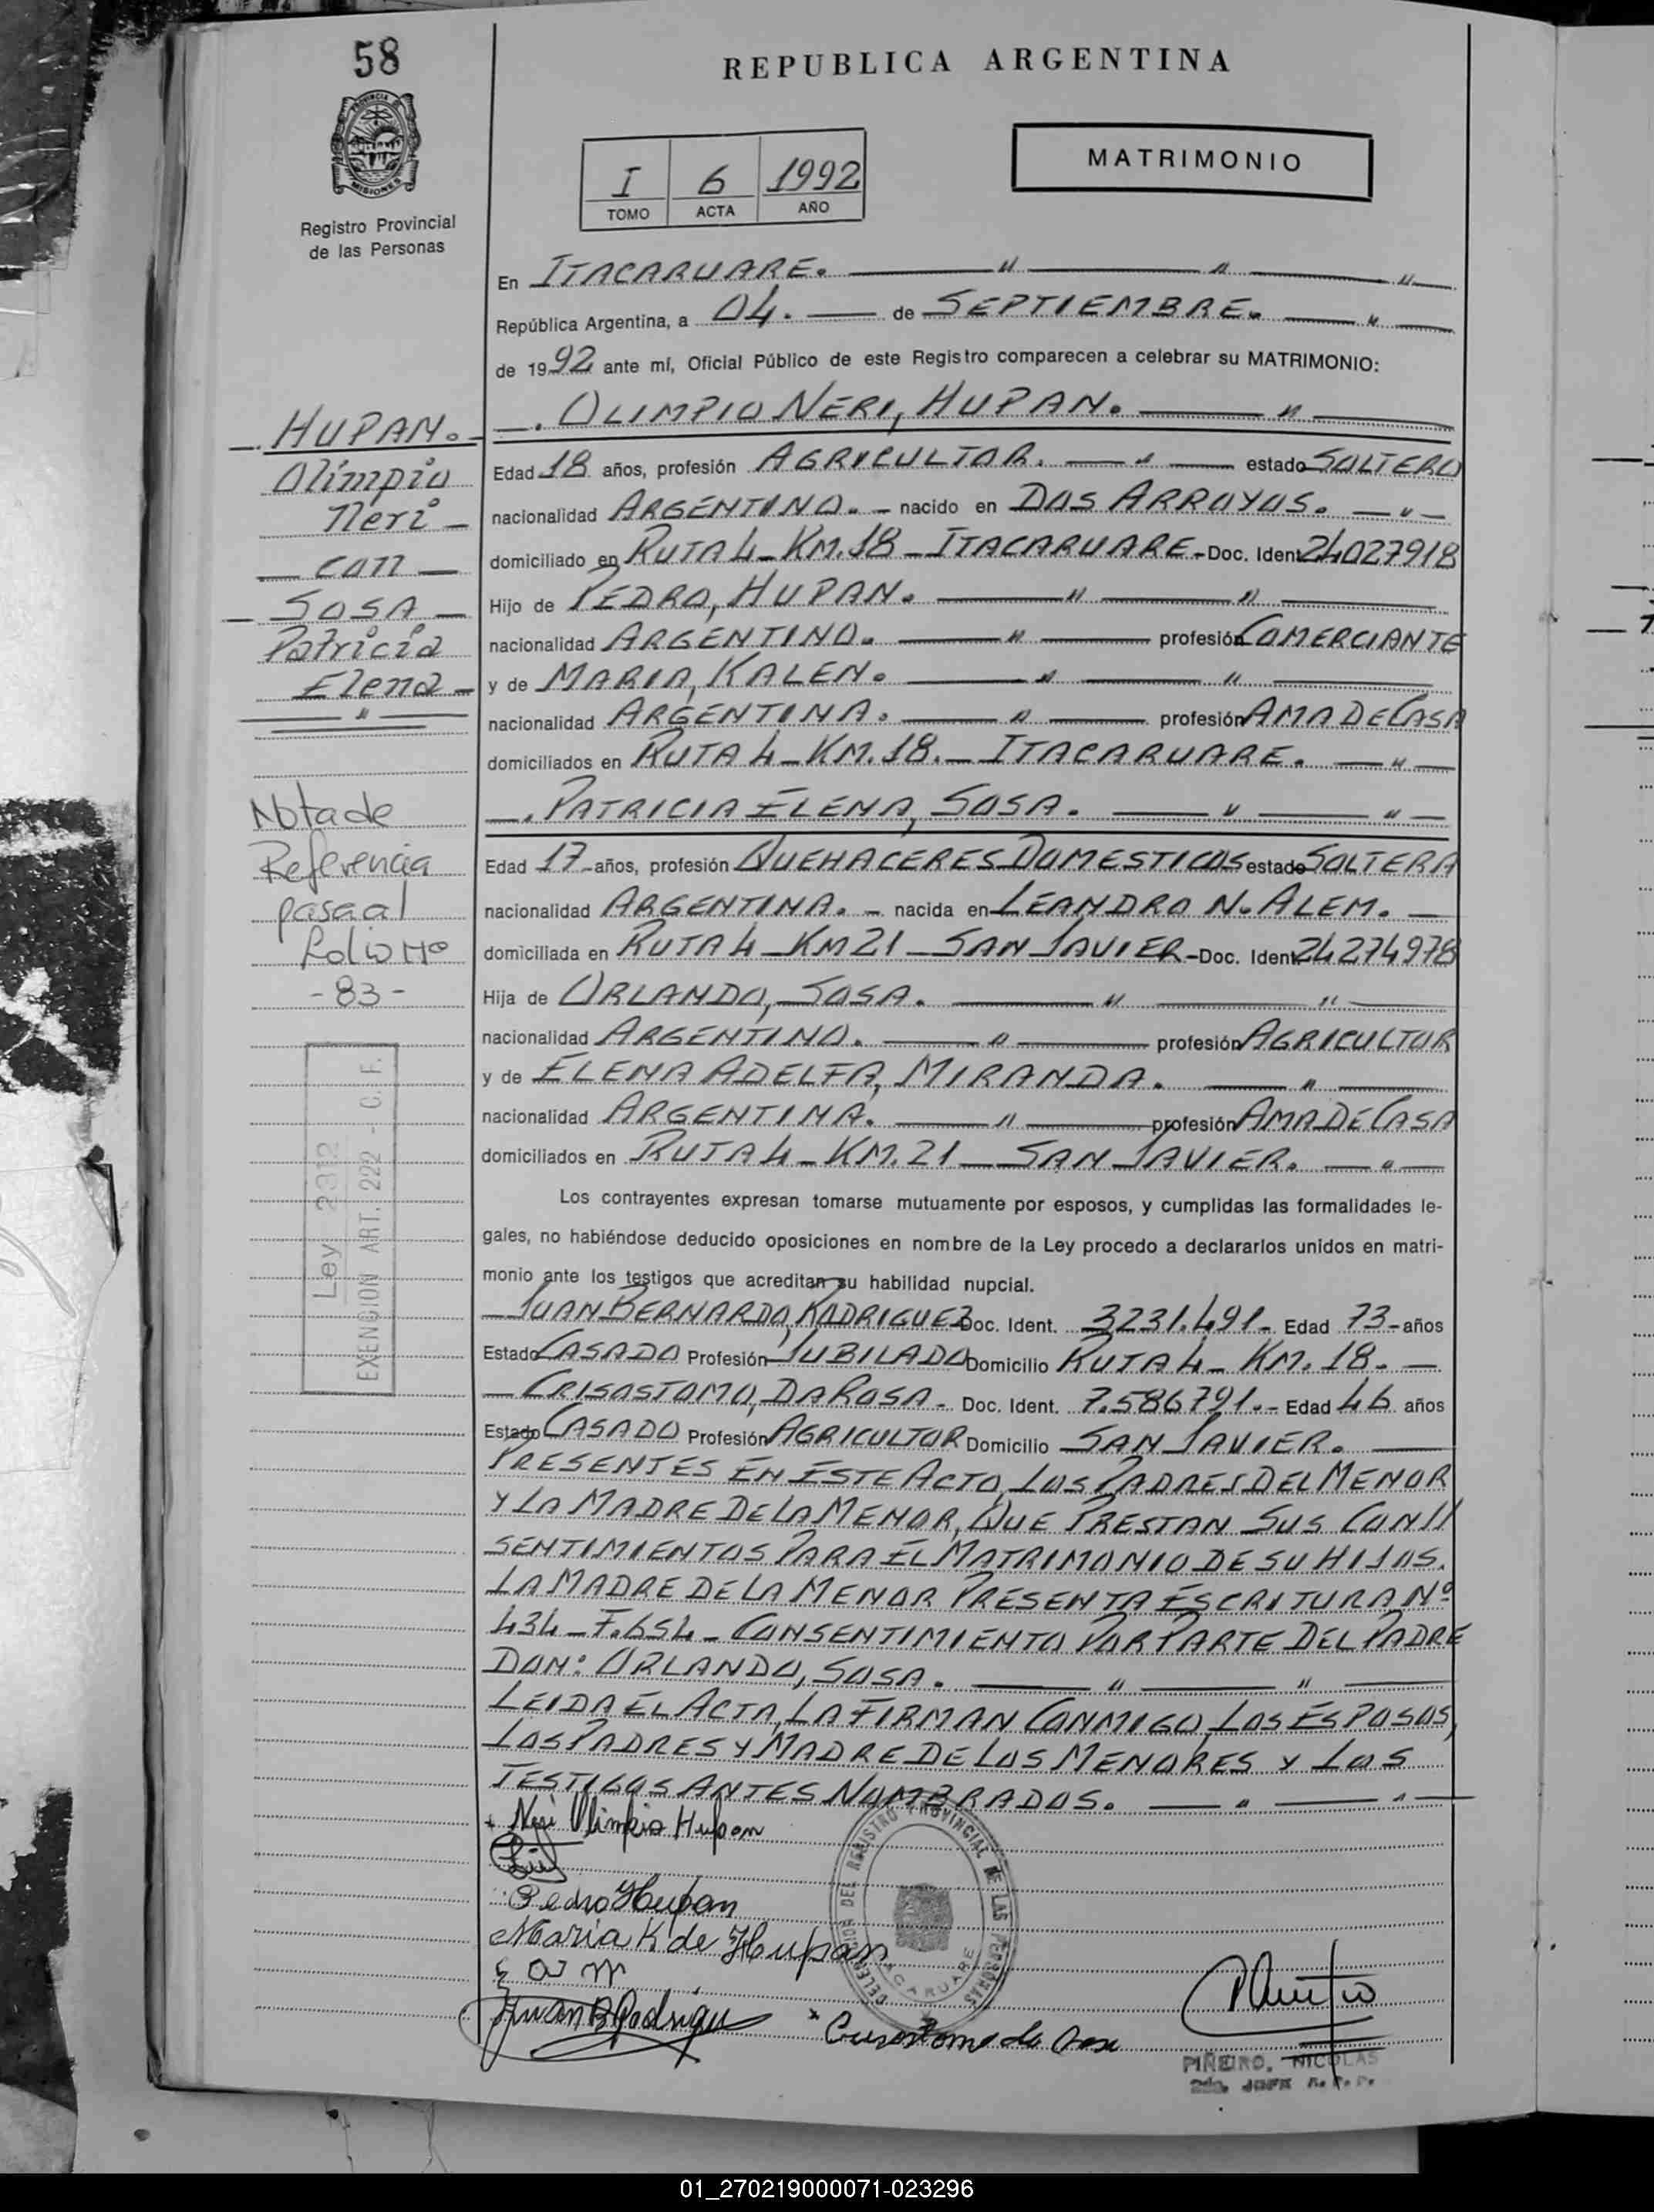 58
REPUBLICA ARGENTINA
PROVINCIA DE
MISIONES
Registro Provincial
de las Personas
I 6 1992
TOMO ACTA AÑO
MATRIMONIO
En ITACARUARE. — " — " — "
República Argentina, a 04. — de SEPTIEMBRE. — " —
de 1992 ante mí, Oficial Público de este Registro comparecen a celebrar su MATRIMONIO:
—. OLIMPIO NERI, HUPAN. — " —
Edad 18 años, profesión AGRICULTOR. — " — estado SOLTERO
nacionalidad ARGENTINO. - nacido en DOS ARROYOS. — " —
domiciliado en RUTA 4 - KM. 18 - ITACARUARE - Doc. Ident. 24027918
Hijo de PEDRO, HUPAN. — " — " —
nacionalidad ARGENTINO. — " — profesión COMERCIANTE
y de MARIA, KALEN. — " — " —
nacionalidad ARGENTINA. — " — profesión AMA DE CASA
domiciliados en RUTA 4 - KM. 18. - ITACARUARE. — " —
—. PATRICIA ELENA, SOSA. — " — " —
Edad 17 - años, profesión QUEHACERES DOMESTICOS estado SOLTERA
nacionalidad ARGENTINA. - nacida en LEANDRO N. ALEM. —
domiciliada en RUTA 4 - KM 21 - SAN JAVIER - Doc. Ident. 24274978
Hija de ORLANDO, SOSA. — " — " —
nacionalidad ARGENTINO. — " — profesión AGRICULTOR
y de ELENA ADELFA, MIRANDA. — " —
nacionalidad ARGENTINA. — " — profesión AMA DE CASA
domiciliados en RUTA 4 - KM. 21 - SAN JAVIER. — " —
Los contrayentes expresan tomarse mutuamente por esposos, y cumplidas las formalidades le-
gales, no habiéndose deducido oposiciones en nombre de la Ley procedo a declararlos unidos en matri-
monio ante los testigos que acreditan su habilidad nupcial.
— JUAN BERNARDO, RODRIGUEZ Doc. Ident. 3231.491 - Edad 73 - años
Estado CASADO Profesión JUBILADO Domicilio RUTA 4 - KM. 18. —
— CRISOSTOMO, DA ROSA - Doc. Ident. 7.586791. - Edad 46 años
Estado CASADO Profesión AGRICULTOR Domicilio SAN JAVIER. —
PRESENTES EN ESTE ACTO, LOS PADRES DEL MENOR
Y LA MADRE DE LA MENOR, QUE PRESTAN SUS CON//
SENTIMIENTOS PARA EL MATRIMONIO DE SU HIJOS.
LA MADRE DE LA MENOR PRESENTA ESCRITURA Nº
434 - F. 654 - CONSENTIMIENTO POR PARTE DEL PADRE
DON: ORLANDO, SOSA. — " — " —
LEIDA EL ACTA, LA FIRMAN CONMIGO, LOS ESPOSOS,
LOS PADRES Y MADRE DE LOS MENORES Y LOS
TESTIGOS ANTES NOMBRADOS. — " — " —
HUPAN.
Olimpio
Neri -
— con —
— SOSA. —
Patricia
Elena -
Nota de
Referencia
pasa al
Folio Nº
- 83 -
Ley 2312
EXENCION ART. 222 - C. F.
+ Neri Olimpio Hupan
Pedro Hupan
Maria K de Hupan
E a m
Juan B Rodrigu
+ Crisostomo da Rosa
DELEGACION DEL REGISTRO PROVINCIAL DE LAS PERSONAS
ITACARUARE
PIÑEIRO, NICOLAS
2do. JEFE R. P. P.
01_270219000071-023296